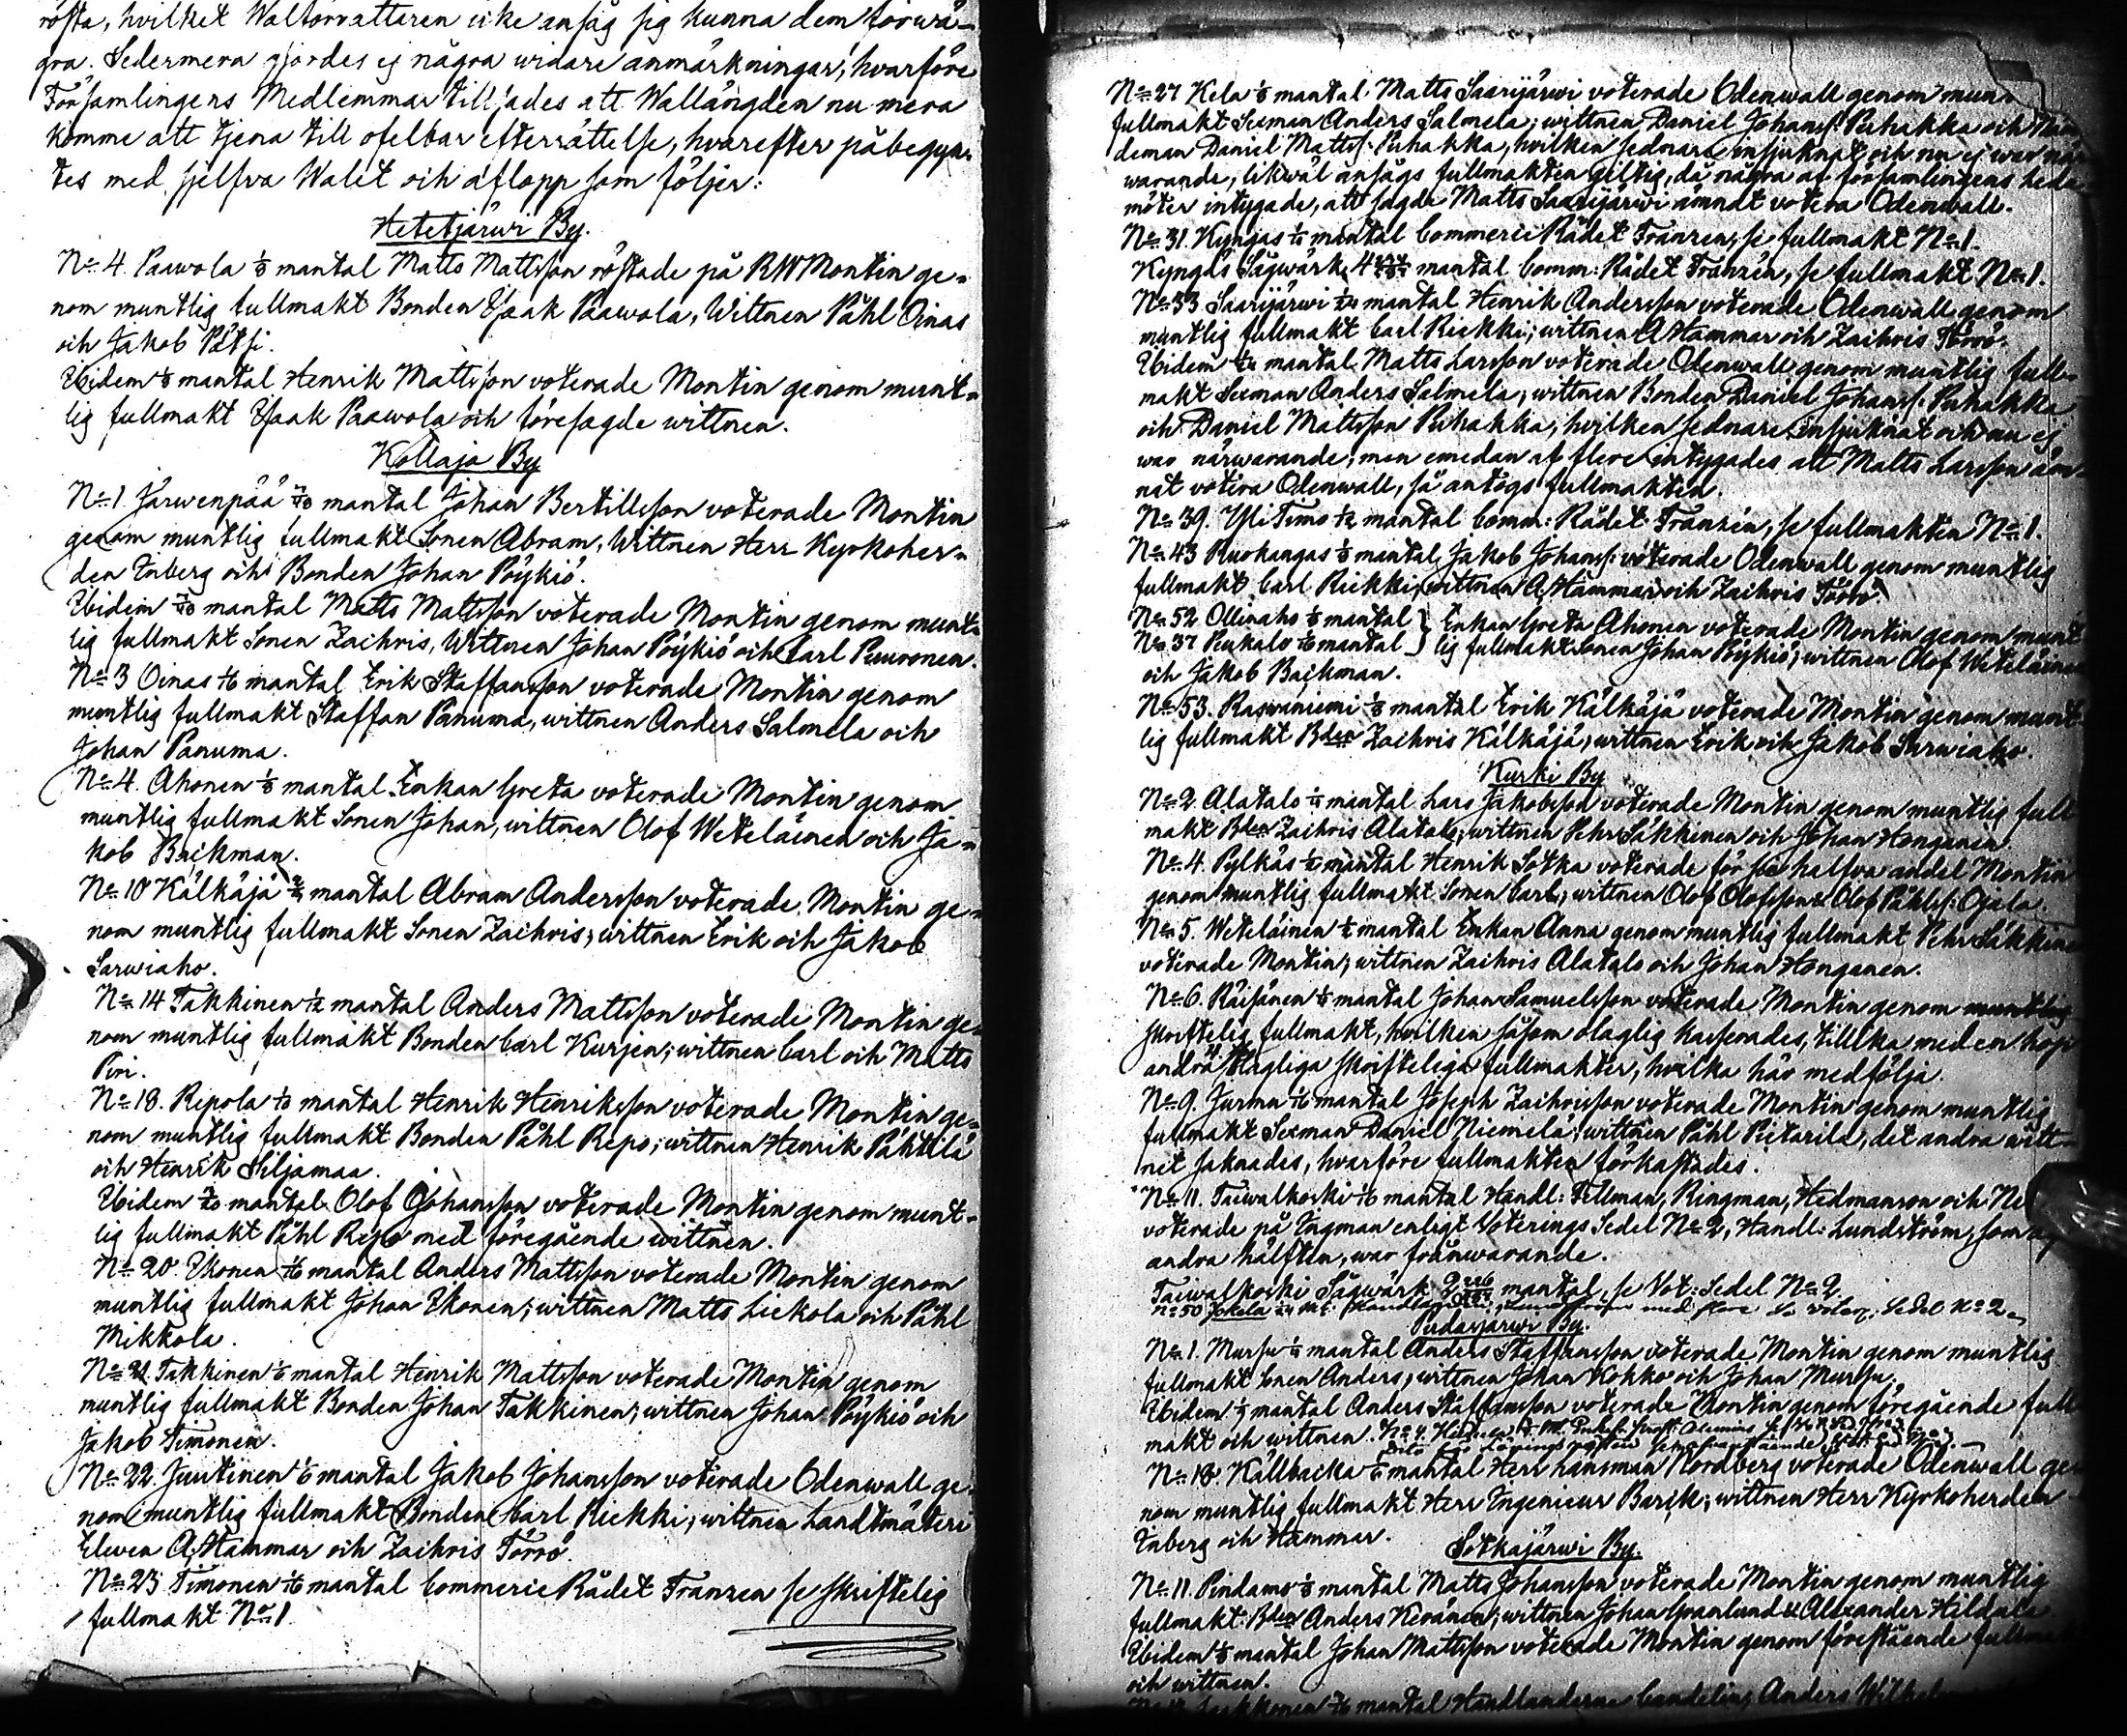 rösta, hvilket Walförrättaren icke ansåg sig kunna dem förwä-
gra. Sedermera gjordes ej några widare anmärkningar, hvarföre
Församlingens Medlemmar tillsades att Wallängden nu mera
komme att tjena till ofelbar efterrättelse, hvarefter påbegyn-
tes med sjelfva Walet och aflopp som följer:
Hetejärwi By.
No 4. Paawola 1/8 mantal Matts Mattsson röstade på Montin ge-
nom muntlig fullmakt Bonden Isaak Paawola, Wittnen Påhl Oinas
och Jakob Pätsi.
Ibidem 1/8 mantal Henrik Mattsson voterade Montin genom munt-
lig fullmakt Isaak Paawola ochföresagde wittnen.
Kollaja By
No 1 Järwenpää mantal Johan Bertillsson voterade Montin
genom muntlig fullmakt Sonen Abram, Wittnen Herr Kyrkoher-
den Enberg och Bonden Johan Pöykiö.
Ibidem mantal Matts Mattsson voterade Montin genom munt-
lig fullmakt Sonen Zachris, Wittnen Johan Pöykiö och Carl Puuronen.
No 3 Oinas 1/16 mantal Erik Staffansson voterade Montin genom
muntlig fullmakt Staffan Panuma, wittnen Anders Salmela och
Johan Panuma.
No 4. Ahonen 1/8 mantal Enkan Greta voterade Montin genom
muntlig fullmakt Sonen Johan, wittnen Olof Weteläinen och Ja-
kob Backman.
No 10 Kälkäjä mantal Abram Andersson voterade Montin ge-
nom muntlig fullmakt Sonen Zachris; wittnen Erik och Jakob
Sarwiaho.
No 14 Takkinen 1/12 mantal Anders Mattsson voterade Montin ge-
nom muntlig fullmakt Bonden Carl Kurjen; wittnen Carl och Matts
Piri.
No 18. Repola mantal Henrik Henriksson voterade Montin ge-
nom muntlig fullmakt Bonden Påhl Repo; wittnen Henrik Pähtilä
och Henrik Siljamaa.
Ibidem mantal Olof Johansson voterade Montin genom munt-
lig fullmakt Påhl Repo med föregående wittnen.
No 20. Ikonen 1/16 mantal Anders Mattsson voterade Montin genom
muntlig fullmakt Johan Ikonen; wittnen Matts Liekola och Påhl
Mikkola.
No 21 Takkinen mantal Henrik Mattsson voterade Montin genom
muntlig fullmakt Bonden Johan Takkinen; wittnen Johan Pöykiö och
Jakob Timonen.
No 22. Juutinen mantal Jakob Johansson voterade Odenwall ge-
nom muntlig fullmakt Bonden Carl Riekki; wittnen Landtmäteri
Eleven A. Hammar och Zachris Törrö.
No 23 Timonen 1/16 mantal Commercie Rådet Franzen se skriftelig
fullmakt No 1.
No 27 Kela 1/8 mantal Matts Saarijärwi voterade Odenwall genom mun
fullmakt Sexman Anders Salmela; wittnen Daniel Johanss: Puhakka och Näm
deman Daniel Mattss: Puhakka, hvilken sednare insjuknat och nu ej war när
warande, likwäl ansågs fullmakten giltig, då några af församlingens leda
möter intygade, att sagde Matts Saarijärwi ämndt votera Odenwall.
No 31. Kyngäs mantal Commercie Rådet Franzen, se fullmakt No 1.
Kyngäs Sågwärk mantal Comm: Rådet Franzén, se fullmakt No 1.
No 33 Saarijärwi mantal Henrik Andersson voterade Odenwall genom
muntlig fullmakt Carl Riekki; wittnen A Hammar och Zachris Törrö.
Ibidem mantal Matts Larsson voterade Odenwall genom muntlig full-
makt Sexman Anders Salmela, wittnen Bonden Daniel Johanss: Puhakka
och Daniel Mattsson Puhakka, hvilken sednare insjuknat och nu ej
war närwarande; men emedan af flere intygades att Matts Larsson äm-
nat votera Odenwall, så antogs fullmakten.
No 39. Yli Timo 1/12 mantal Comm: Rådet Franzén, se fullmakten No 1.
No 43 Kuokangas 1/8 mantal Jakob Johanss: voterade Odenwall genom muntlig
fullmakt Carl Riekki, wittnen A. Hammar och Zachris Törrö.
No 52 Ollinaho 1/8 mantal } Enkan Greta Ahonen voterade Montin genom munt
No 37 Peukalo mantal } lig fullmakt Sonen Johan Pöykiö; wittnen Olof Weteläinen
och Jakob Backman.
No 53. Rasvaniemi 1/8 mantal Erik Kälkäjä voterade Montin genom munt-
lig fullmakt Bden Zachris Kälkäjä, wittnen Erik och Jakob Sarwiaho.
Kurki By
No 2 Alatalo mantal Lars Jakobsson voterade Montin genom muntlig full
makt Bden Zachris Alatalo; wittnen Pehr Säkkinen och Johan Honganen.
No 4. Pylkäs mantal Henrik Sotka voterade för sin halfva andel Montin
genom muntlig fullmakt Sonen Carl; wittnen Olof Olofsson & Olof Påhlss: Ojala.
No 5. Weteläinen mantal Enkan Anna genom muntlig fullmakt Pehr Säkkine
voterade Montin; wittnen Zachris Alatalo och Johan Honganen.
No 6. Räisänen mantal Johan Samuelsson voterade Montin genom muntlig
skriftelig fullmakt, hvilken såsom olaglig kasserades, tillika med en hop
andra olagliga skrifteliga fullmakter, hvilka här medfölja.
No 9. Jurmu 1/16 mantal Joseph Zachrisson voterade Montin genom muntlig
fullmakt Sexman Daniel Niemelä; wittnen Påhl Pietarila, det andra witt-
net saknades, hvarföre fullmakten förkastades.
No 11. Taiwalkoski 1/16 mantal Handl: Fellman, Ringman, Hedmanson och Ne
voterade på Ingman enligt Voterings Sedel No 2, Handl: Lundström, som äg
andra hälften, war frånwarande.
Taiwalkoski Sågwärk mantal, se Vot: Sedel No 2.
No 50 Jokela med flere se voter. Sedel No 2
Pudasjärwi By.
No 1. Mursu mantal Anders Staffansson voterade Montin genom muntlig
fullmakt Sonen Anders; wittnen Johan Kokko och Johan Mursu.
Ibidem mantal Anders Staffansson voterade Montin genom föregående full
makt och wittnen.
No 18. Källbacka mantal Herr Länsman Nordberg voterade Odenwall ge
nom muntlig fullmakt Herr Ingenieur Barck; wittnen Herr Kyrkoherden
Enberg och Hammar.
Sotkajärwi By.
No 11. Pindamo 1/8 mantal Matts Johansson voterade Montin genom muntlig
fullmakt Bden Anders Keränen; wittnen Johan Granlund & Alexander Hildala
Ibidem 1/8 mantal Johan Mattsson voterade Montin genom förestående fullmakt
och wittnen.
mantal Handlanderne Anders